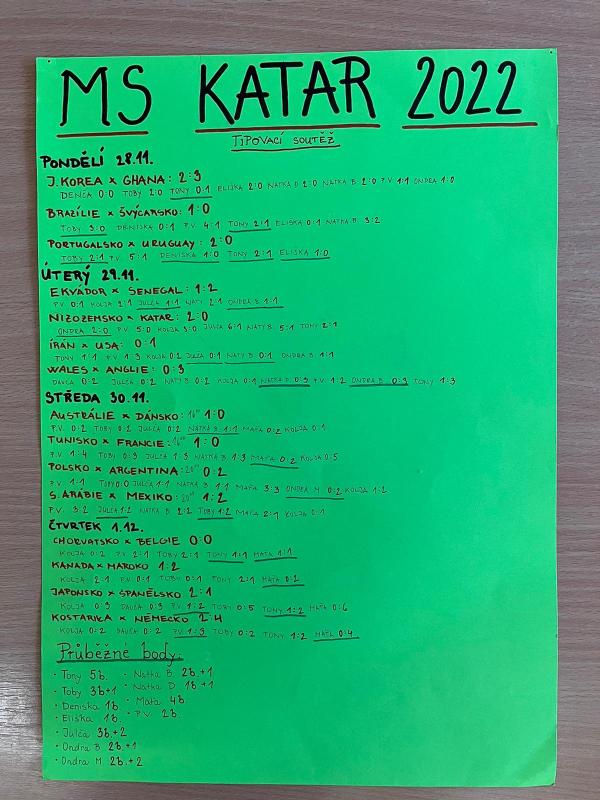 MS KATAR 2022
TIPOVACÍ SOUTĚŽ
PONDĚLÍ 28.11.
J. KOREA × GHANA: 2:3
DENČA 0:0 TOBY 2:0 TONY 0:1 ELIŠKA 2:0 NATKA D. 2:0 NATKA B. 2:0 P.V. 1:1 ONDRA 1:0
BRAZÍLIE × ŠVÝCARSKO: 1:0
TOBY 3:0 DENISKA 0:1 P.V. 4:1 TONY 2:1 ELISKA 0:1 NATKA B. 3:2
PORTUGALSKO × URUGUAY: 2:0
TOBY 2:1 P.V. 5:1 DENISKA 1:0 TONY 2:1 ELISKA 1:0
ÚTERÝ 29.11.
EKVÁDOR × SENEGAL: 1:2
P.V. 0:1 KOLJA 2:1 JULČA 1:1 NATY 2:1 ONDRA B. 1:1
NIZOZEMSKO × KATAR: 2:0
ONDRA 2:0 P.V. 5:0 KOLJA 3:0 JULČA 6:1 NATY B. 5:1 TONY 2:1
ÍRÁN × USA: 0:1
TONY 1:1 P.V. 1:3 KOLJA 0:2 JULČA 0:1 NATY B. 0:1 ONDRA B. 1:1
WALES × ANGLIE: 0:3
0:2 JULČA 0:2 NATY B. 0:2 KOLJA 0:1 NATKA D. 0:3 P.V. 1:2 ONDRA B. 0:3 TONY 1:3
STŘEDA 30.11.
AUSTRÁLIE × DÁNSKO: 16⁰⁰ 1:0
P.V. 0:2 TOBY 0:2 JULČA 0:2 NATKA B. 1:1 MAŤA 0:2 KOLJA 0:1
TUNISKO × FRANCIE: 16⁰⁰ 1:0
P.V. 1:4 TOBY 0:3 JULČA 1:3 NATKA B. 1:3 MAŤA 0:2 KOLJA 0:5
POLSKO × ARGENTINA: 20⁰⁰ 0:2
P.V. 1:1 TOBY 0:0 JULČA 1:1 NATKA B. 1:1 MAŤA 3:3 ONDRA M. 0:2 KOLJA 1:2
S. ARÁBIE × MEXIKO: 20⁰⁰ 1:2
P.V. 3:2 JULČA 1:2 NATKA B. 2:2 TOBY 1:2 MAŤA 2:1 KOLJA 2:1
ČTVRTEK 1.12.
CHORVATSKO × BELGIE 0:0
KOLJA 0:2 P.V. 2:1 TOBY 2:1 TONY 1:1 MAŤA 1:1
KANADA × MAROKO 1:2
KOLJA 2:1 P.V. 0:1 TOBY 0:1 TONY 2:1 MAŤA 0:2
JAPONSKO × ŠPANĚLSKO 2:1
KOLJA 0:3 0:3 P.V. 1:2 TOBY 0:5 TONY 1:2 MAŤA 0:6
KOSTARIKA × NĚMECKO 2:4
KOLJA 0:2 0:2 P.V. 1:3 TOBY 0:2 TONY 1:2 MAŤA 0:4
Průběžné body:
• Tony 5b. • Natka B. 2b.+1
• Toby 3b+1 • Natka D. 1b.+1
• Deniska 1b. • Maťa 4b
• Eliška 1b. • P.V. 2b.
• Julča 3b.+2
• Ondra B 2b.+1
• Ondra M. 2b.+2